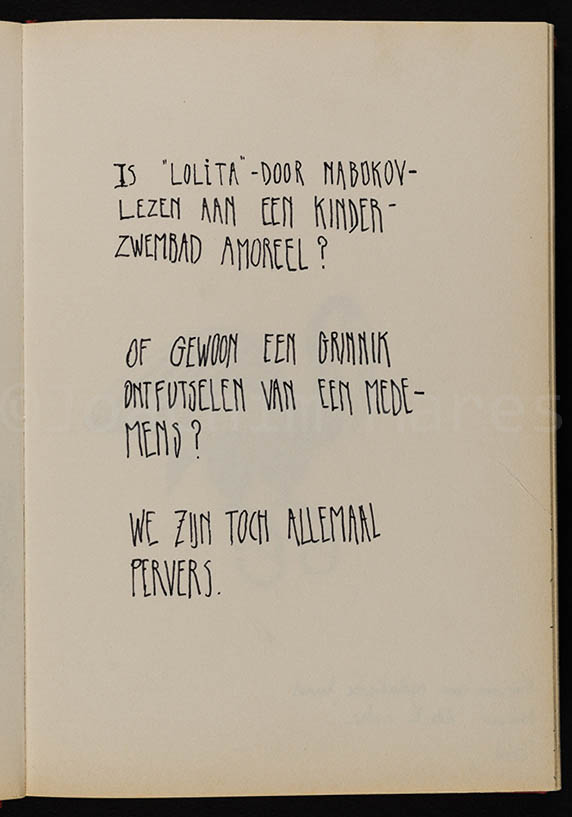 IS "LOLITA"-DOOR NABOKOV-
LEZEN AAN EEN KINDER-
ZWEMBAD AMOREEL?
OF GEWOON EEN GRINNIK
ONTFUTSELEN VAN EEN MEDE-
MENS?
WE ZIJN TOCH ALLEMAAL
PERVERS.